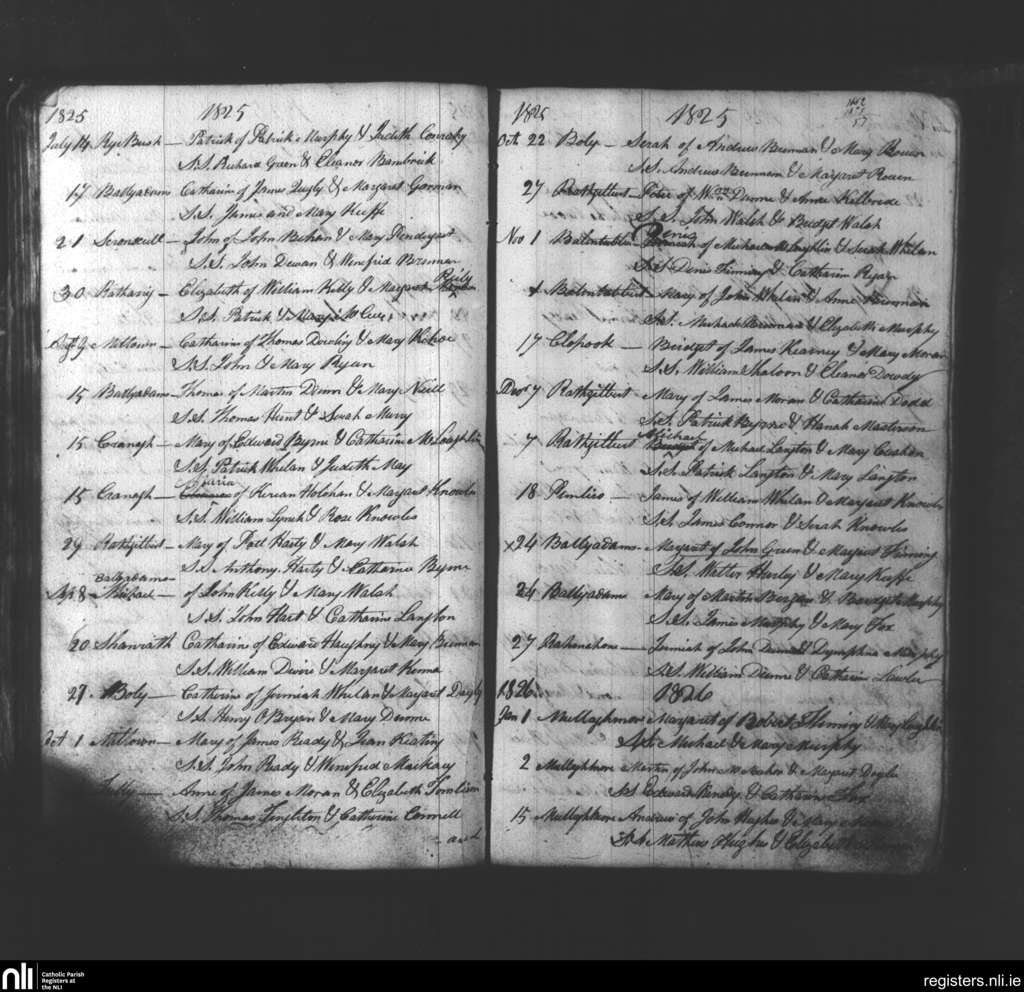 1825 1825
July 14 Rye Bush — Patrick of Patrick Murphy & Judith Conrahy
S.S. Richard Green & Eleanor Bambrick
17 Ballyadams Catharine of James Quigly & Margaret Gorman
S.S. James and Mary Keeffe
21 — John of John Behan & Mary Pendergast
S.S. John Dewan & Winefrid Brennan
30 — Elizabeth of William Kelly & Margaret Reily
S.S. Patrick &
9 Miltown — Catharine of Thomas Dowling & Mary Kehoe
S.S. John & Mary Ryan
15 Ballyadams Thomas of Martin Dunn & Mary Neill
S.S. Thomas Hunt & Sarah Murry
15 Cranagh — Mary of Edward Byrne & Catharine McLoughlin
S.S. Patrick Whelan & Judith May
15 Cranagh — of Kerian Holohan & Margaret Knowles
S.S. William Lynch & Rose Knowles
29 Rathgilbert — Mary of Harty & Mary Walsh
S.S. Anthony Harty & Catharine Byrne
Ballyadams
8 Michael — of John Kelly & Mary Walsh
S.S. John Hart & Catharine Langton
20 Shanrath Catharine of Edward Humphrey & Mary Brennan
S.S. William & Margaret Kenna
27 Boly — Catherine of Jermiah Whelan & Margaret
S.S. Henry O Bryan & Mary Dunne
Oct 1 Miltown — Mary of James Ready & Jean Keating
S.S. John Ready & Winefred Mackay
Tully — Anne of James Moran & Elizabeth Tomlison
S.S. Thomas Singleton & Catharine Connell
1825 1825
Oct 22 Boly — Serah of Andrew Brennan & Mary
S.S. Andrew Brennan & Margaret
27 Rathgilbert — Peter of Wm Dunne & Anne Kilbride
S.S. John Walsh & Bridget Walsh
Denis
Nov 1 of Michael McLoughlin & Serah Whelan
S.S. Denis Fleming & Catharine Ryan
Mary of John Whelan & Anne Brennan
S.S. Michael Brennan & Elizabeth Murphy
17 Clopook — Bridget of James Kearney & Mary Moran
S.S. William & Eleanor Dowdy
Decr 7 Rathgilbert — Mary of James Moran & Catharine Dodd
S.S. Patrick Byrne & Hanah Masterson
Michael
7 Rathgilbert of Michael Langton & Mary
S.S. Patrick Langton & Mary Langton
18 Pimlico — James of William Whelan & Margaret Knowles
S.S. James Connor & Serah Knowles
x24 Ballyadams — Margaret of John Green & Margaret Fleming
S.S. Walter Hurley & Mary Keeffe
24 Ballyadams Mary of Martin & Bridget Murphy
S.S. James Murphy & Mary Fox
27 — Jermiah of John Dunne & Dymphna Murphy
S.S. William Dunne & Catharine Lawler
1826 1826
Jan 1 Mullaghmore Margaret of Robert Fleming & Mary
S.S. Michael & Mary Murphy
2 Mullaghmore Martin of John McMahon & Margaret Doyle
S.S. Edward & Catharine Fox
15 Mullaghmore Andrew of John Hughes & Mary
S.S. Mathew Hughes & Elizabeth
nli Catholic Parish
Registers at
the NLI
registers.nli.ie